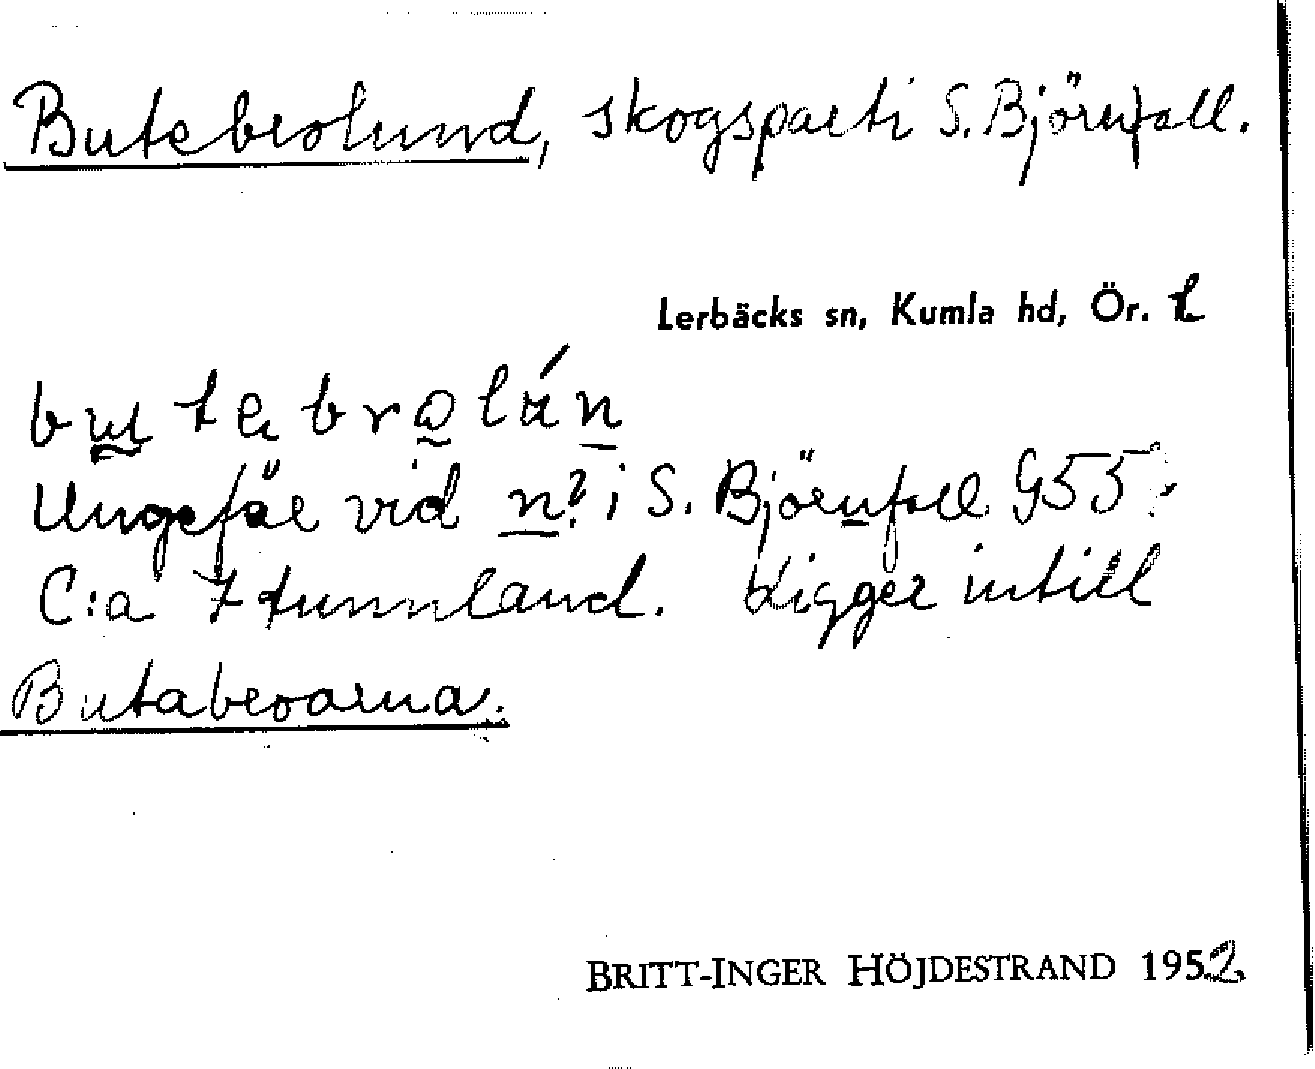 Butebrolund, skogsparti S. Björnfall.
Lerbäcks sn, Kumla hd, Ör. l
Ungefär vid n? i S. Björnfall G55.
C:a 7 tunnland. Ligger intill
Butabroarna.
BRITT-INGER HÖJDESTRAND 1952